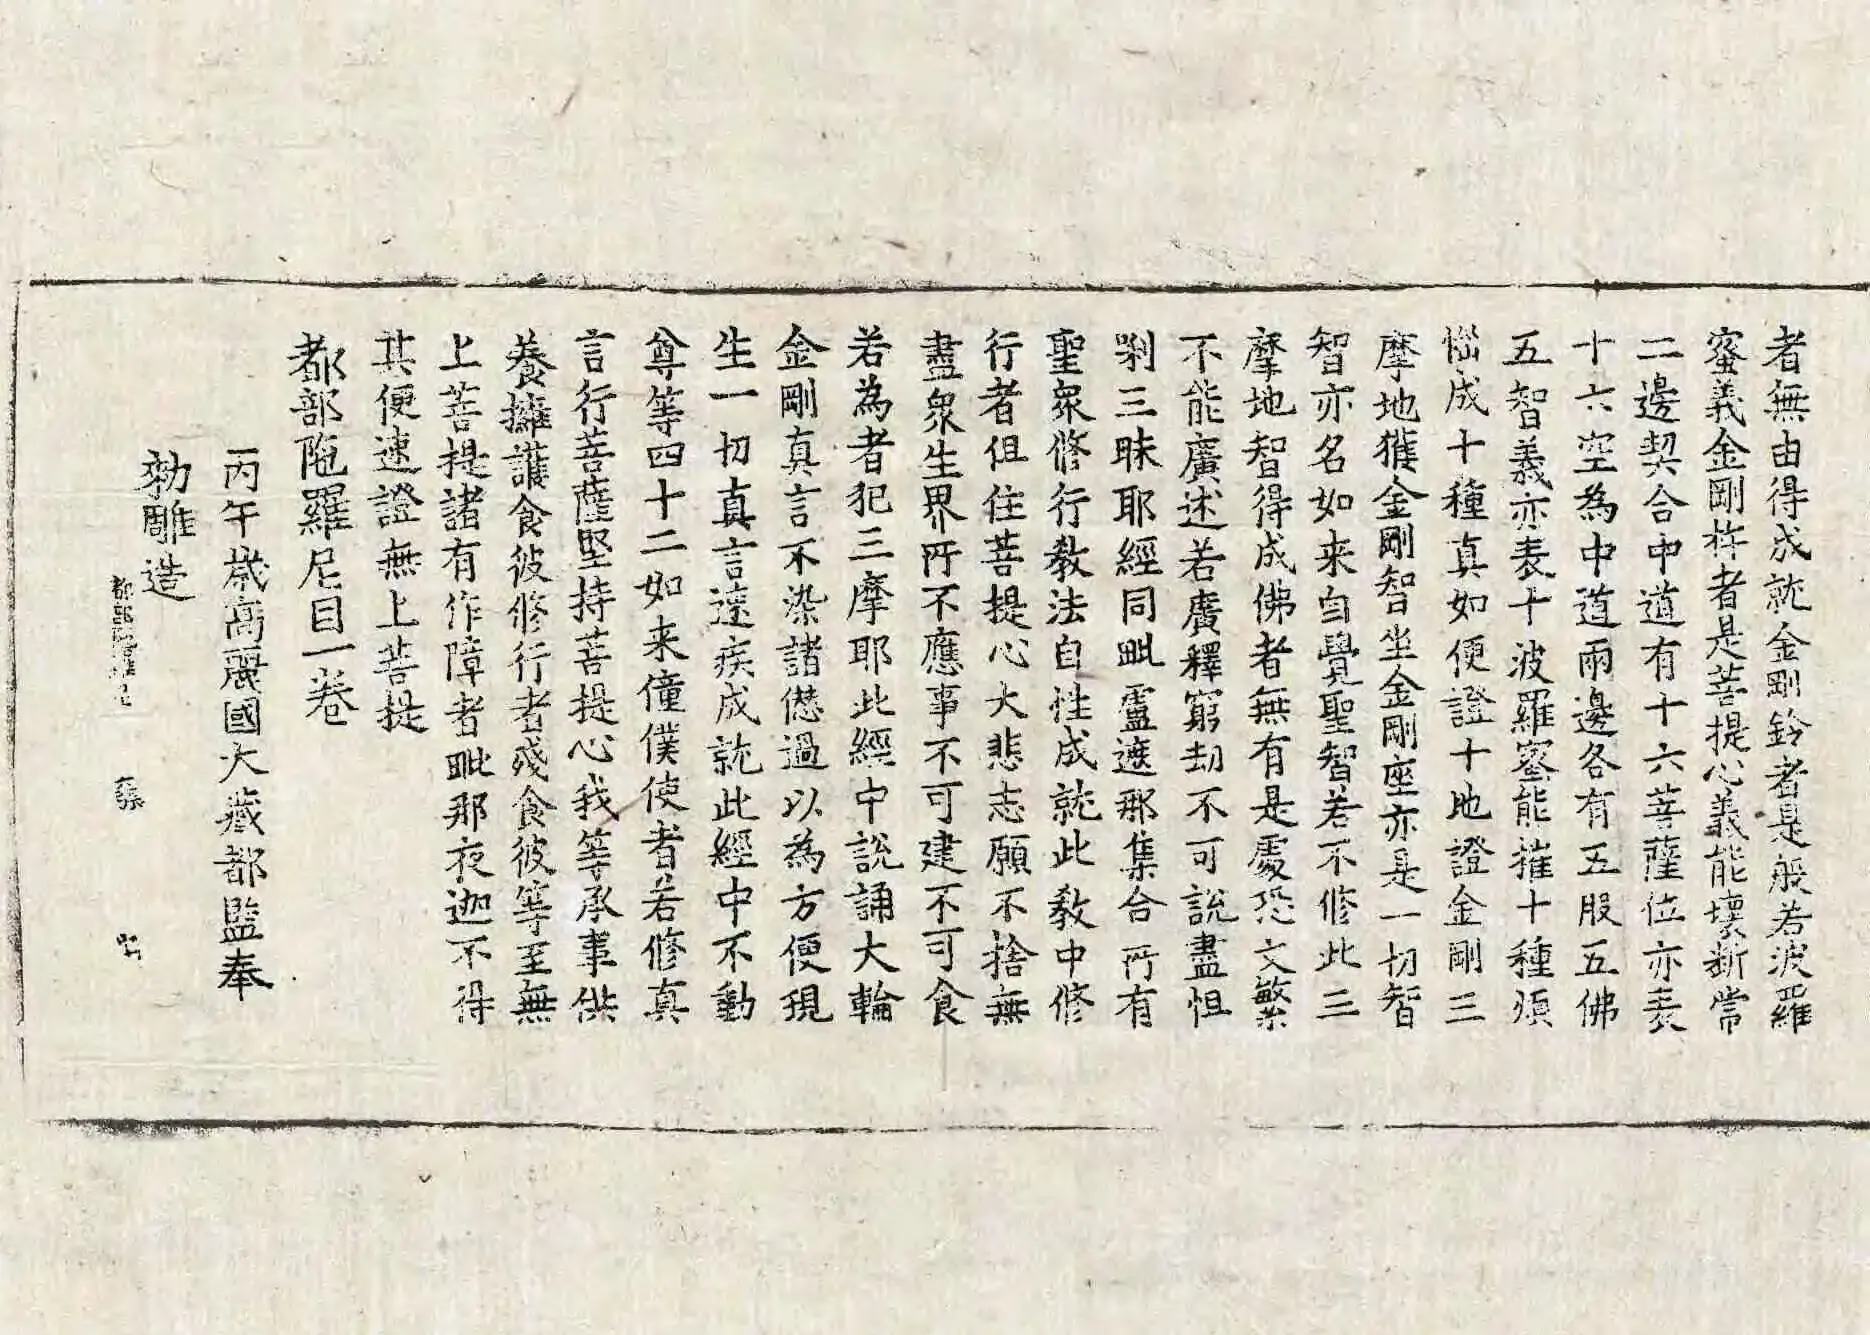 者無由得成就金剛鈴者是般若波羅
蜜義金剛杵者是菩提心義能壞斷常
二邊契合中道有十六菩薩位亦表
十六空為中道兩邊各有五股五佛
五智義亦表十波羅蜜能摧十種煩
惱成十種真如便證十地證金剛三
摩地獲金剛智坐金剛座亦是一切智
智亦名如来自覺聖智若不修此三
摩地智得成佛者無有是處恐文繁
不能廣述若廣釋窮劫不可說盡怛
唎三昧耶經同毗盧遮那集合所有
聖衆修行教法自性成就此教中修
行者但住菩提心大悲志願不捨無
盡衆生界所不應事不可建不可食
若為者犯三摩耶此經中說誦大輪
金剛真言不染諸僁過以為方便現
生一切真言速疾成就此經中不動
尊等四十二如来僮僕使者若修真
言行菩薩堅持菩提心我等承事供
養擁護食彼修行者殘食彼等至無
上菩提諸有作障者毗那夜迦不得
其便速證無上菩提
都部陁羅尼目一卷
丙午歲高麗國大藏都監奉
勑雕造
都部陁羅尼 張